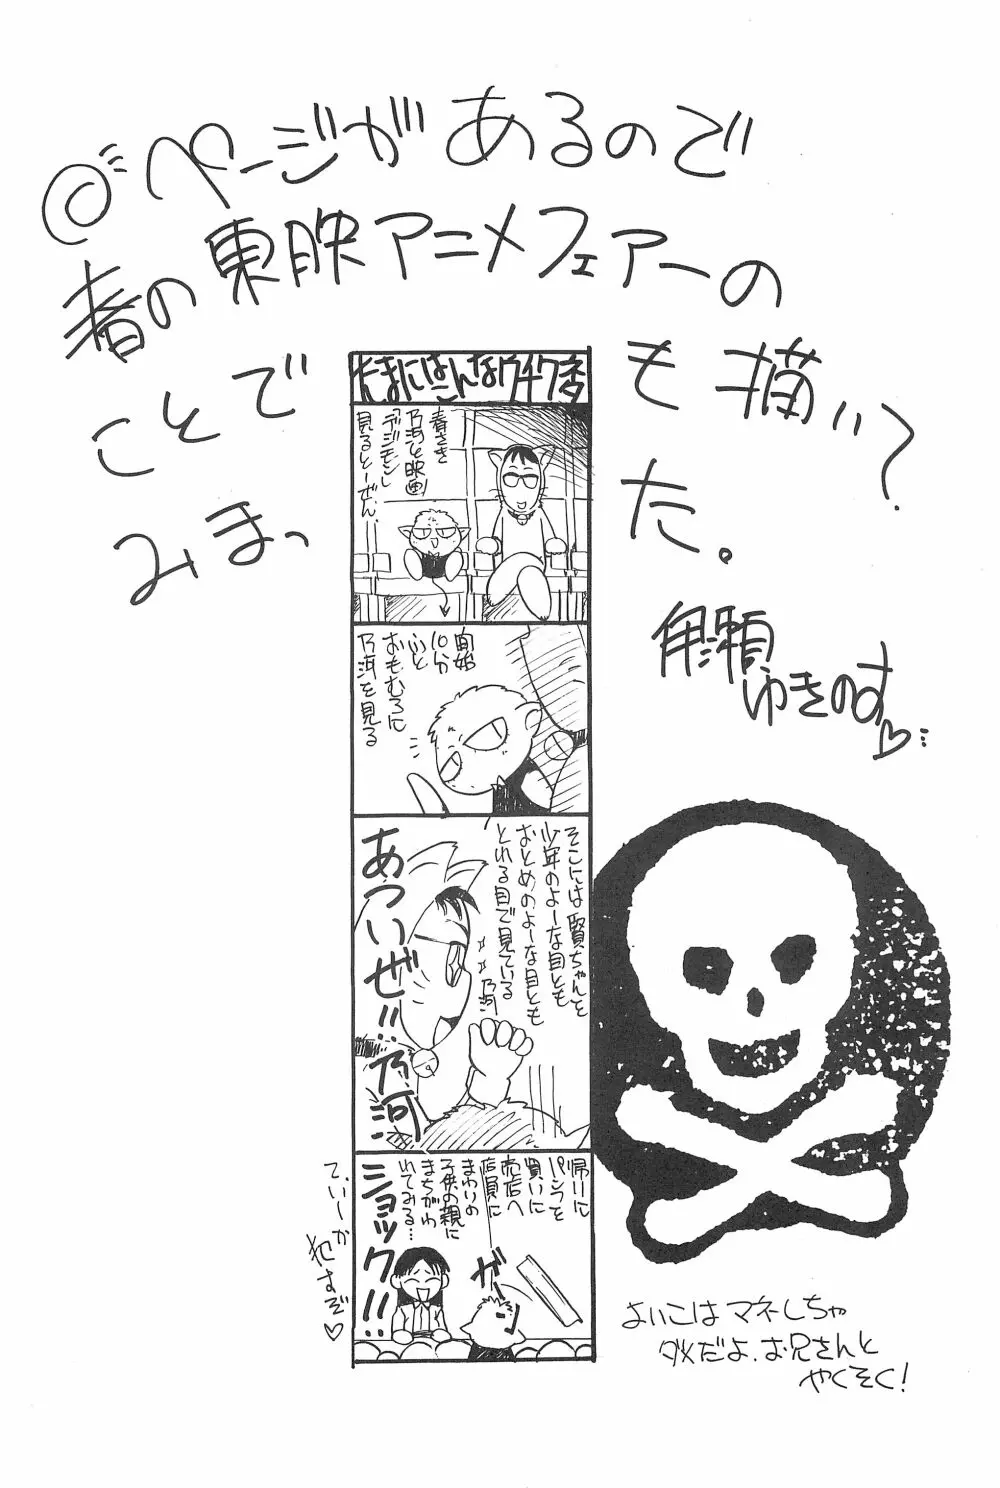 ◎ページがあるので
春の東映アニメフェアーの
ことでも描い?
みまった。
角瀬
ゆきのす♡
たまにはこんなウチワネタ
春さき
乃河と映画
「デジモン」
見るとーぜん、
開始
10分
ふと
おもむろに
乃河を見る
そこには賢ちゃんを
少年のよーな目とも
おとめのよーな目とも
とれる目で見ている
乃河
あついぜ!!乃河!!
帰りに
パンフを
買いに
売店へ
店員に
まわりの
子供の親に
まちがわ
れてみる…
ガーン
ショック!!
てゆーか
犯すぞ♡
よいこはマネしちゃ
ダメだよ、お兄さんと
やくそく!